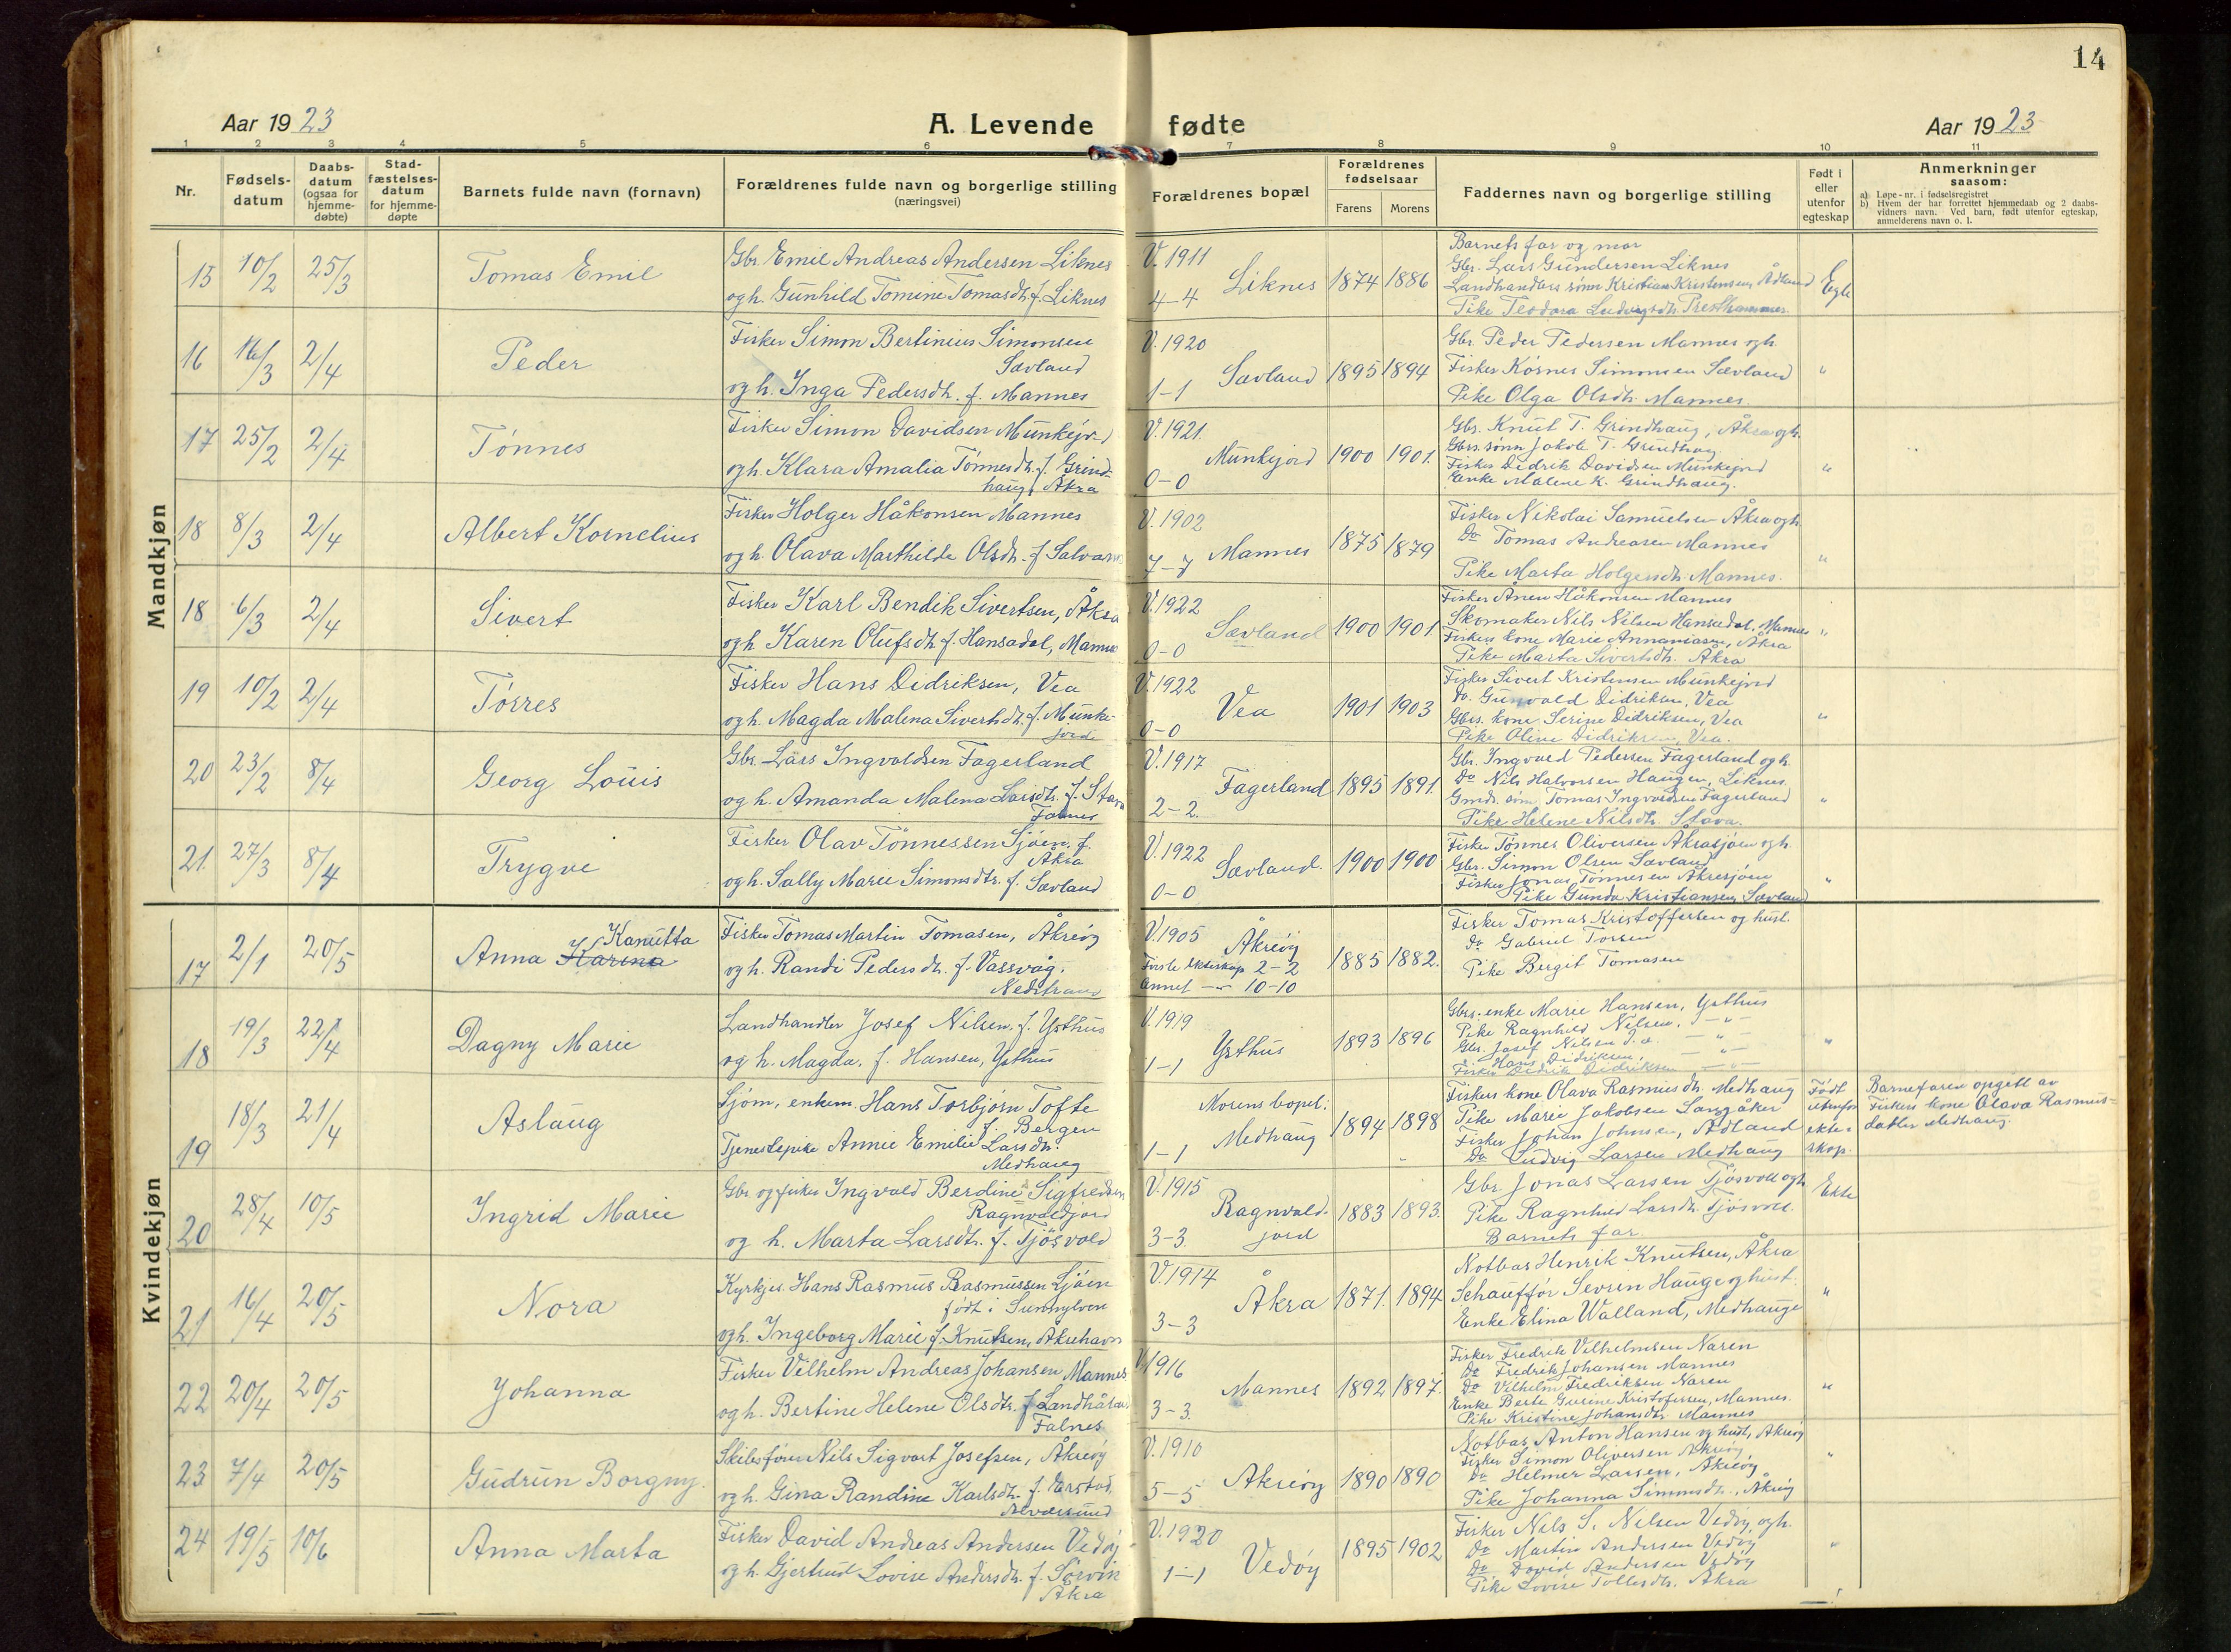 14
Aar 1923
A. Levende fødte
Aar 1923
1 2 3 4 5 6 7 8 9 10 11
Nr.
Fødsels-
datum
Daabs-
datum
(ogsaa for
hjemme-
døbte)
Stad-
fæstelses-
datum
for hjemme-
døpte
Barnets fulde navn (fornavn)
Forældrenes fulde navn og borgerlige stilling
(næringsvei)
Forældrenes bopæl
Forældrenes
fødselsaar
Farens
Morens
Faddernes navn og borgerlige stilling
Født i
eller
utenfor
egteskap
Anmerkninger
saasom:
a) Løpe-nr. i fødselsregistret
b) Hvem der har forrettet hjemmedaab og 2 daabs-
vidners navn. Ved barn, født utenfor egteskap,
anmelderens navn o. l.
Mandkjøn
15 10/2 25/3 Tomas Emil
Gbr. Emil Andreas Andersen Liknes
og h. Gunhild Tomine Tomasdh. f. Liknes
V. 1911
4-4 Liknes 1874 1886
Barnets far og mor
Gbr. Lars Gundersen Liknes
Landhandlers sønn Kristian Kristensen Ådland
Pike Teodora Ludvigsdh. Presthammer
16 16/3 2/4 Peder
Fisker Simon Bertinius Simonsen
Sævland
og h. Inga Pedersdh. f. Mannes
V. 1920
1-1 Sævland 1895 1894
Gbr. Peder Pedersen Mannes og h.
Fisker Kornes Simonsen Sævland
Pike Olga Olsdh. Mannes.
"
17 25/2 2/4 Tønnes
Fisker Simon Davidsen Munkejord
og h. Klara Amalia Tønnesdh. f. Grind-
haug, Åkra
V. 1921.
0-0 Munkejord 1900 1901.
Gbr. Knut T. Grindhaug, Åkra og h.
Gbrs. sønn Jakob T. Grindhaug
Fisker Didrik Davidsen Munkejord
Enke Malene K. Grindhaug.
"
18 8/3 2/4 Albert Kornelius
Fisker Holger Håkonsen Mannes
og h. Olava Marthilde Olsdh. f.
V. 1902
7-7 Mannes 1875 1879
Fisker Nikolai Samuelsen Åkra og h.
Do Tomas Andreasen Mannes
Pike Marta Holgersdh. Mannes.
"
18 6/3 2/4 Sivert
Fisker Karl Bendik Sivertsen, Åkra
og h. Karen Olufsdh. f. Hansadal, Mannes
V. 1922
0-0 Sævland 1900 1901
Fisker Håkonsen Mannes
Skomaker Nils Nilsen Hansadal, Mannes
Fiskers kone Marie Annaniasen, Åkra
Pike Marta Sivertsdh. Åkra
"
19 10/2 2/4 Torres
Fisker Hans Didriksen, Vea
og h. Magda Malena Sivertsdh. f. Munke-
jord
V. 1922
0-0 Vea 1901 1903
Fisker Sivert Kristensen Munkejord
do. Gunvald Didriksen, Vea
Gbrs. kone Serine Didriksen, Vea
Pike Oline Didriksen, Vea.
"
20 23/2 8/4 Georg Louis
Gbr. Lars Ingvaldsen Fagerland
og h. Amanda Malena Larsdh. f. Stava
Falnes
V. 1917
2-2. Fagerland 1895 1891.
Gbr. Ingvald Pedersen Fagerland og h.
Do Nils Halvorsen Haugen, Liknes.
Tomas Ingvaldsen Fagerland
Pike Helene Nilsdh. Stava.
"
21. 27/3 8/4 Trygve
Fisker Olav Tønnessen Sjøen, f.
Åkra
og h. Sally Marie Simonsdtr. f. Sævland
V. 1922
0-0 Sævland. 1900 1900
Fisker Tønnes Oliversen Åkrasjøen og h.
Gbr. Simon Olsen Sævland
Fisker Jonas Tønnesen Åkresjøen
Pike Gunda Kristiansen, Sævland
"
Kvindekjøn
17 2/1 20/5 Anna Karina Kanutta
Fisker Tomas Martin Tomasen, Åkreøy
og h. Randi Pedersdh. f. Vassvåg.
Nedstrand
V. 1905 Åkreøy
Første ekteskap 2-2
Annet -"- 10-10
1885 1882.
Fisker Tomas Kristoffersen og hust.
do Gabriel Torsen
Pike Bergit Tomasen
18 19/3 22/4 Dagny Marie
Landhandler Josef Nilsen, f. Ysthus
og h. Magda, f. Hansen, Ysthus
V. 1919
1-1 Ysthus 1893 1896
Gbrs. enke Marie Hansen, Ysthus
Pike Ragnhild Nilsen, -"-
Gbr. Josef Nilsen d. e. -"-
Hans Didriksen,
Fisker Didrik Didriksen -"-
"
19 18/3 21/4 Aslaug
Sjøm, enkem. Hans Torbjørn Tofte
f. Bergen
Tjenestepike Annie Emilie Larsdh.
Medhaug
Morens bopel:
1-1 Medhaug 1894 1898
Fiskers kone Olava Rasmusdh. Medhaug
Pike Marie Jakobsen Langåker
Fisker Johan Johnsen, Ådland
Do Ludvig Larsen Medhaug
Født
utenfor
ekte-
skap.
Barnefaren opgitt av
Fiskers kone Olava Rasmus-
datter Medhaug.
20 28/4 10/5 Ingrid Marie
Gbr. og fisker Ingvald Berdines Sigfredsen
Ragnvaldjord
og h. Marta Larsdtr. f. Tjøsvold
V. 1915
3-3. Ragnvald-
jord 1883 1893.
Gbr. Jonas Larsen Tjøsvoll og h.
Pike Ragnhild Larsdh. Tjøsvoll.
Barnets far.
Ekte
21 16/4 20/5 Nora
Kyrkjes. Hans Rasmus Rasmussen Sjøen
født i Sunnylven
og h. Ingeborg Marie f. Knutsen, Åkrehavn
V. 1914
3-3 Åkra 1871. 1894
Notbas Henrik Knutsen, Åkra
Schauffør Sevrin Hauge og hust.
Enke Elina Walland, Medhauge
"
22 20/4 20/5 Johanna
Fisker Vilhelm Andreas Johansen Mannes
og h. Bertine Helene Olsdtr. f.
Falnes
V. 1916
3-3. Mannes 1892 1897.
Fisker Fredrik Vilhelmsen Naren
Do Fredrik Johansen Mannes
Do Vilhelm Fredriksen Naren
Enke Berte Gurine Kristofersen, Mannes.
Pike Kristine Johansdh. Mannes
"
23 7/4 20/5 Gudrun Borgny.
Skibsfører Nils Sigvart Josefsen, Åkreøy
og h. Gina Randine Karlsdh. f.
Alversund
V. 1910
5-5 Åkreøy 1890 1890
Notbas Anton Hansen og hust, Åkreøy
Fisker Simon Oliversen Åkreøy,
Do Helmer Larsen, Åkreøy
Pike Johanna Simonsdh., Åkreøy
"
24 19/5 10/6 Anna Marta
Fisker David Andreas Andersen Vedøy
og h. Gjertrud Lovise Andersdh. f. Sørvik
Åkra
V. 1920
1-1 Vedøy 1895 1902
Fisker Nils S. Nilsen Vedøy, og h.
Do Martin Andersen Vedøy
Do David Andersen Vedøy
Pike Lovise Tollesdh. Åkra
"